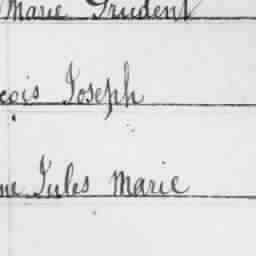 Marie Prudent
çois Joseph
ne Jules Marie